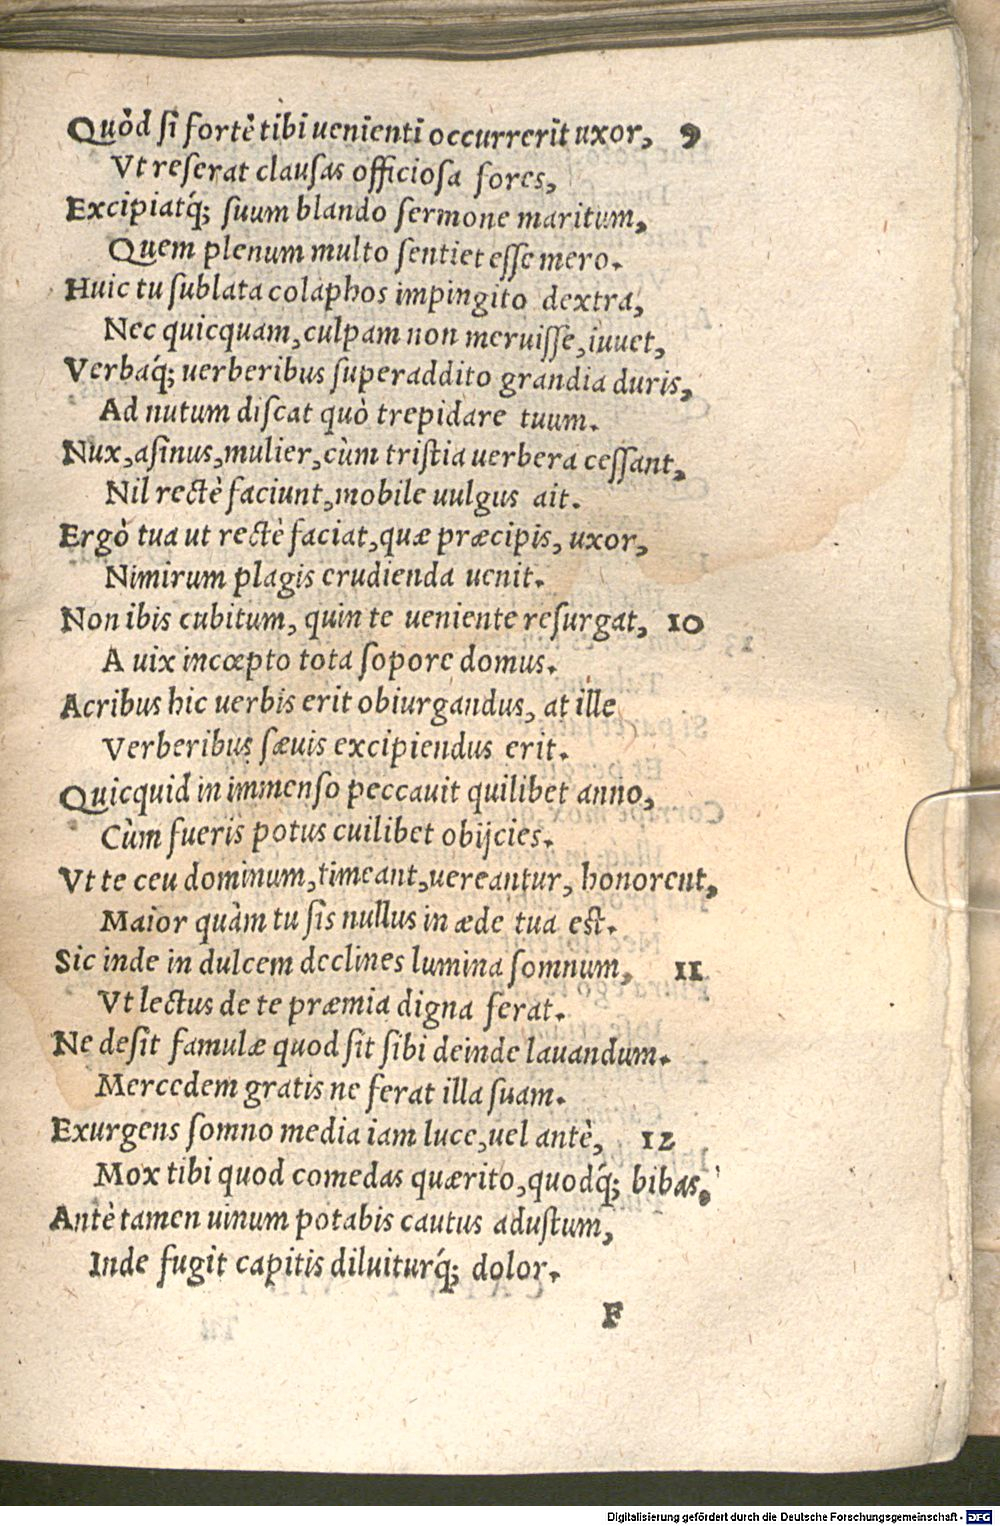 Quòd si fortè tibi uenienti occurrerit uxor, 9
Vt reserat clausas officiosa fores,
Excipiatq́; suum blando sermone maritum,
Quem plenum multo sentiet esse mero.
Huic tu sublata colaphos impingito dextra,
Nec quicquam, culpam non meruisse, iuuet,
Verbaq́; uerberibus superaddito grandia duris,
Ad nutum discat quò trepidare tuum.
Nux, asinus, mulier, cùm tristia uerbera cessant,
Nil rectè faciunt, mobile uulgus ait.
Ergò tua ut rectè faciat, quæ præcipis, uxor,
Nimirum plagis erudienda uenit.
Non ibis cubitum, quin te ueniente resurgat, 10
A uix incœpto tota sopore domus.
Acribus hic uerbis erit obiurgandus, at ille
Verberibus sæuis excipiendus erit.
Quicquid in immenso peccauit quilibet anno,
Cùm fueris potus cuilibet obijcies.
Vt te ceu dominum, timeant, uereantur, honorent,
Maior quàm tu sis nullus in æde tua est.
Sic inde in dulcem declines lumina somnum, 11
Vt lectus de te præmia digna ferat.
Ne desit famulæ quod sit sibi deinde lauandum.
Mercedem gratis ne ferat illa suam.
Exurgens somno media iam luce, uel antè, 12
Mox tibi quod comedas quærito, quodq́; bibas.
Antè tamen uinum potabis cautus adustum,
Inde fugit capitis diluiturq́; dolor.
F
Digitalisierung gefördert durch die Deutsche Forschungsgemeinschaft - DFG